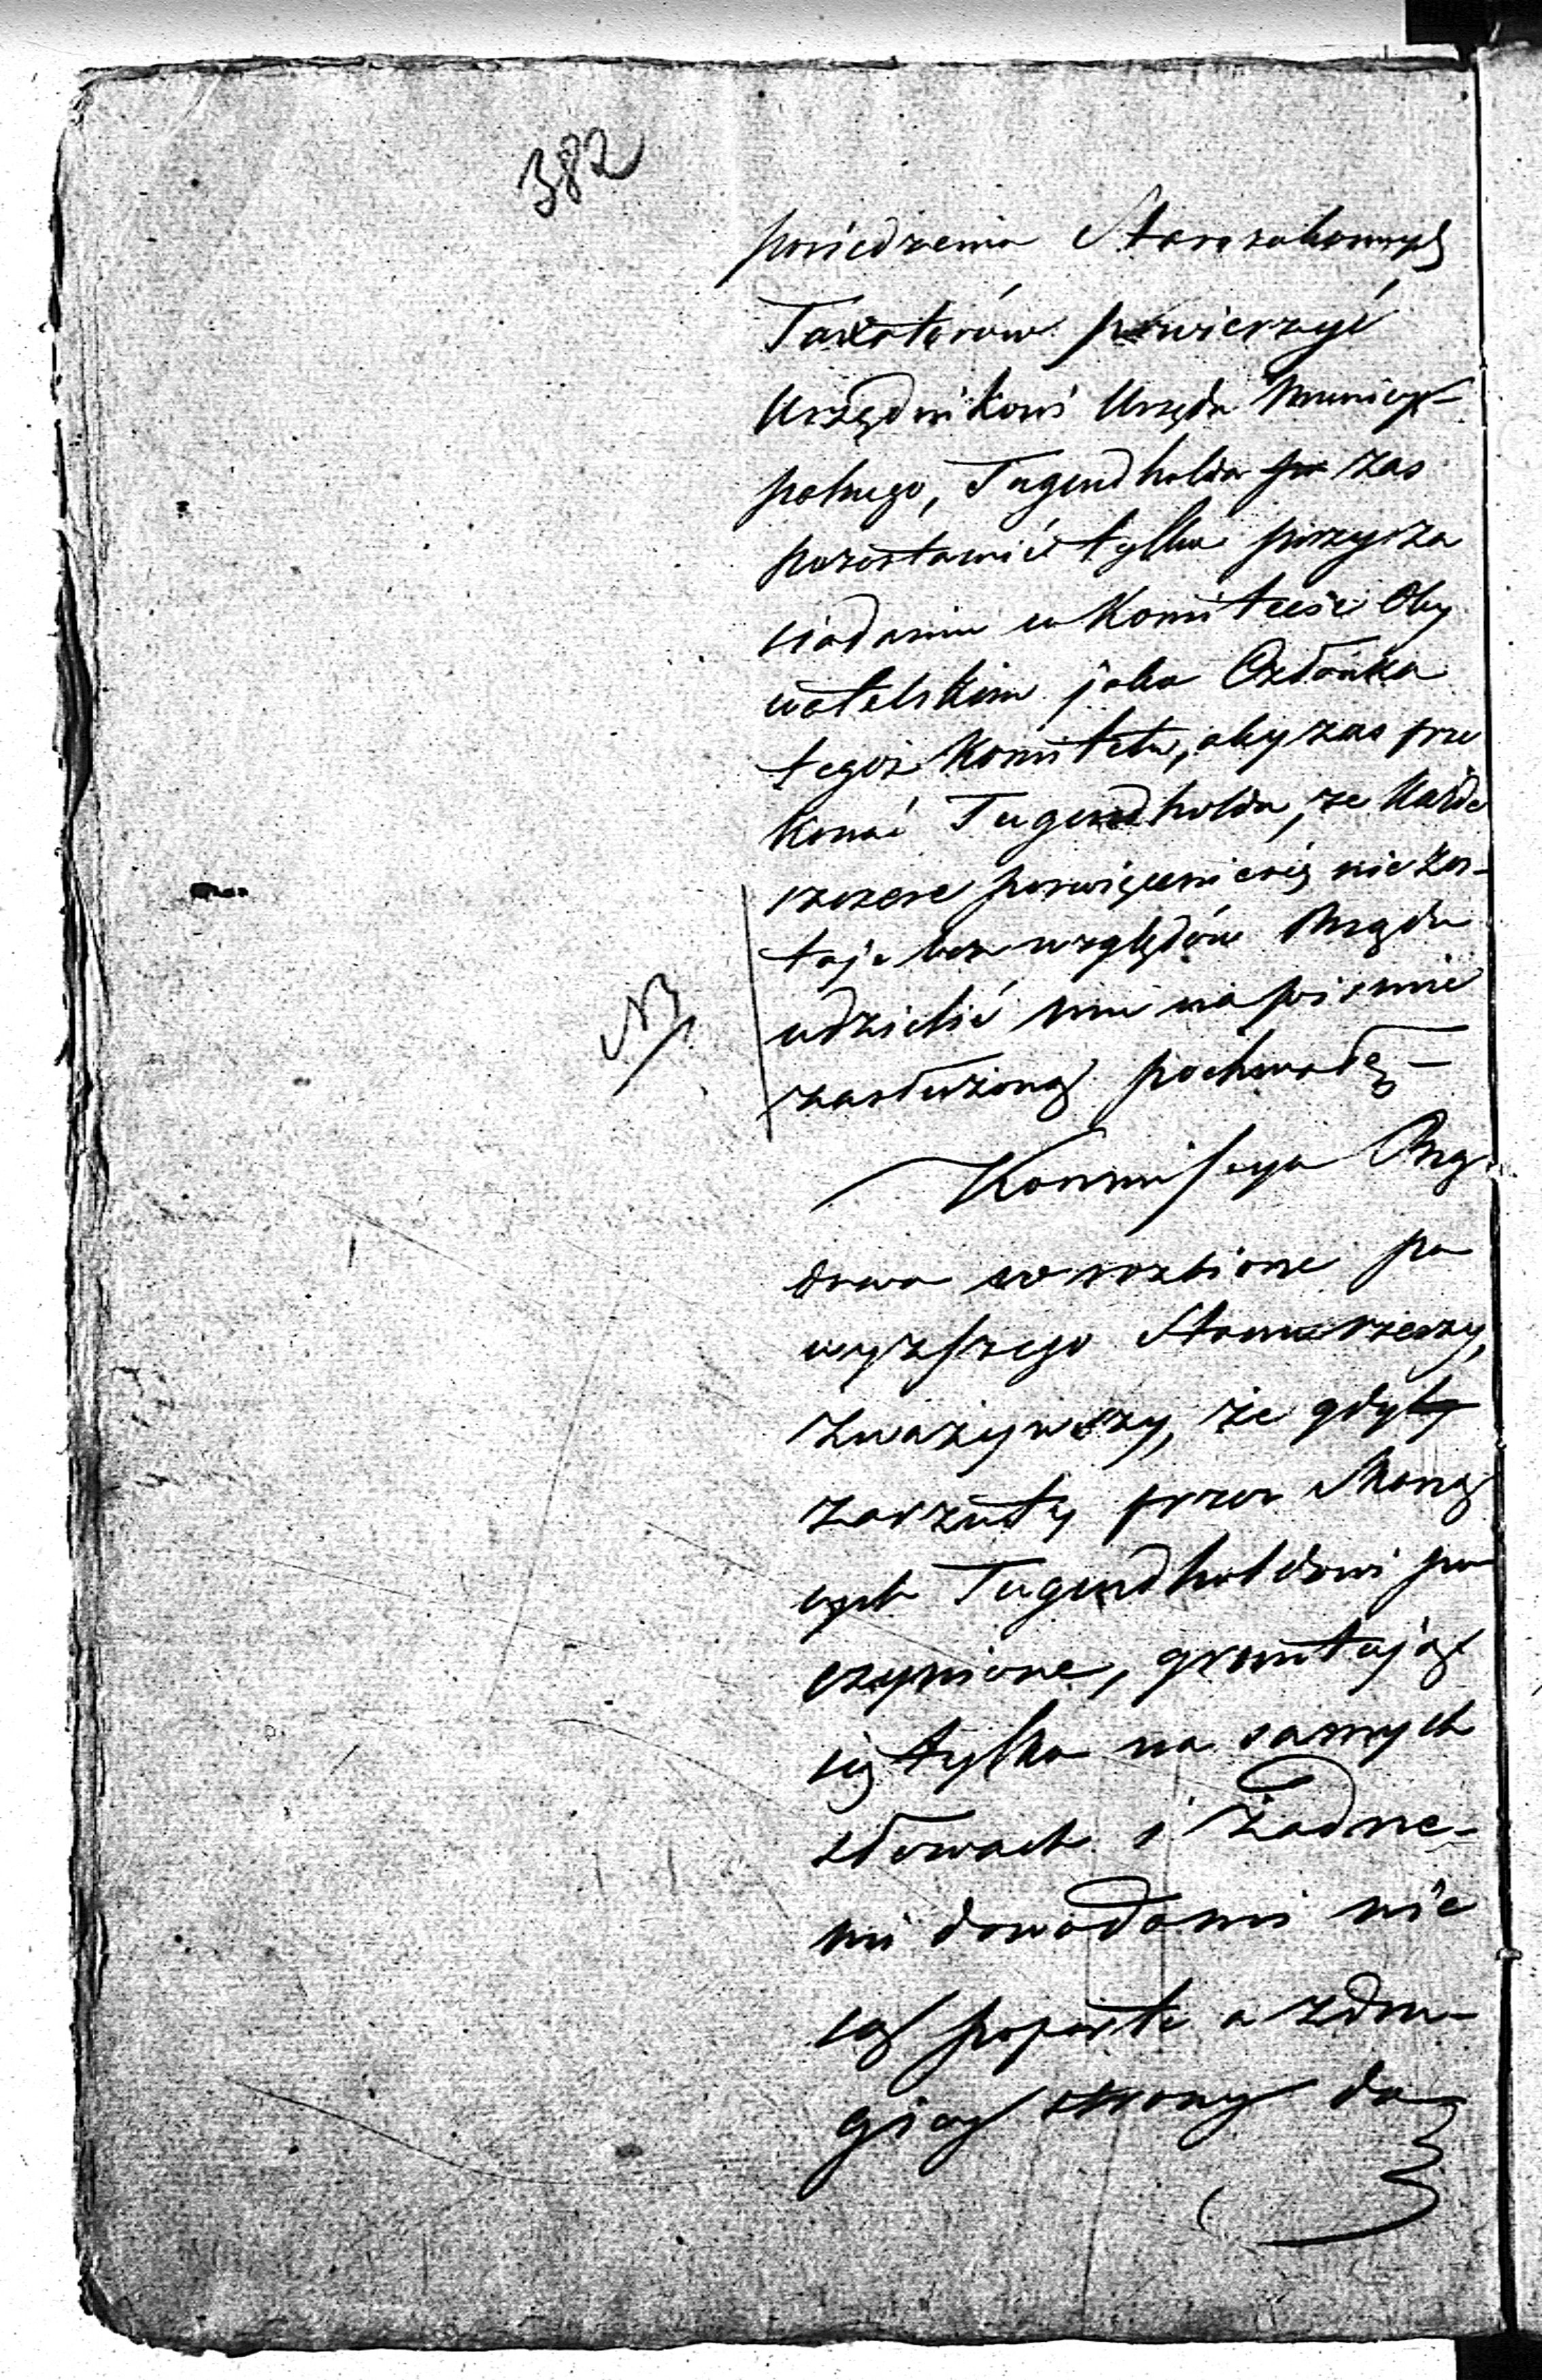 382
posiedzenia Starozakonnych
Taxatorów powierzyć
Urzędnikowi Urzędu Municy-
palnego, Tugendholda zas
pozostawić tylko przy za
siadaniu w Komitecie Oby
watelskim jako Członka
tegoż Komitetu, aby zas prze
konać Tugendholda, że każde
szczere poswięcenie się nie zos-
taje bez względów Rządu
udzielić mu na pismie
zasłużoną pochwałę —
NB
Kommissya Rzą
dowa w rozbiorze po
wyższego Stanu rzeczy,
zważywszy, że gdy
zarzuty przez
cych Tugendholdowi po
czynione, gruntując
się tylko na samych
słowach i żadne-
mi dowodami nie
są poparte a z dru
giej strony do